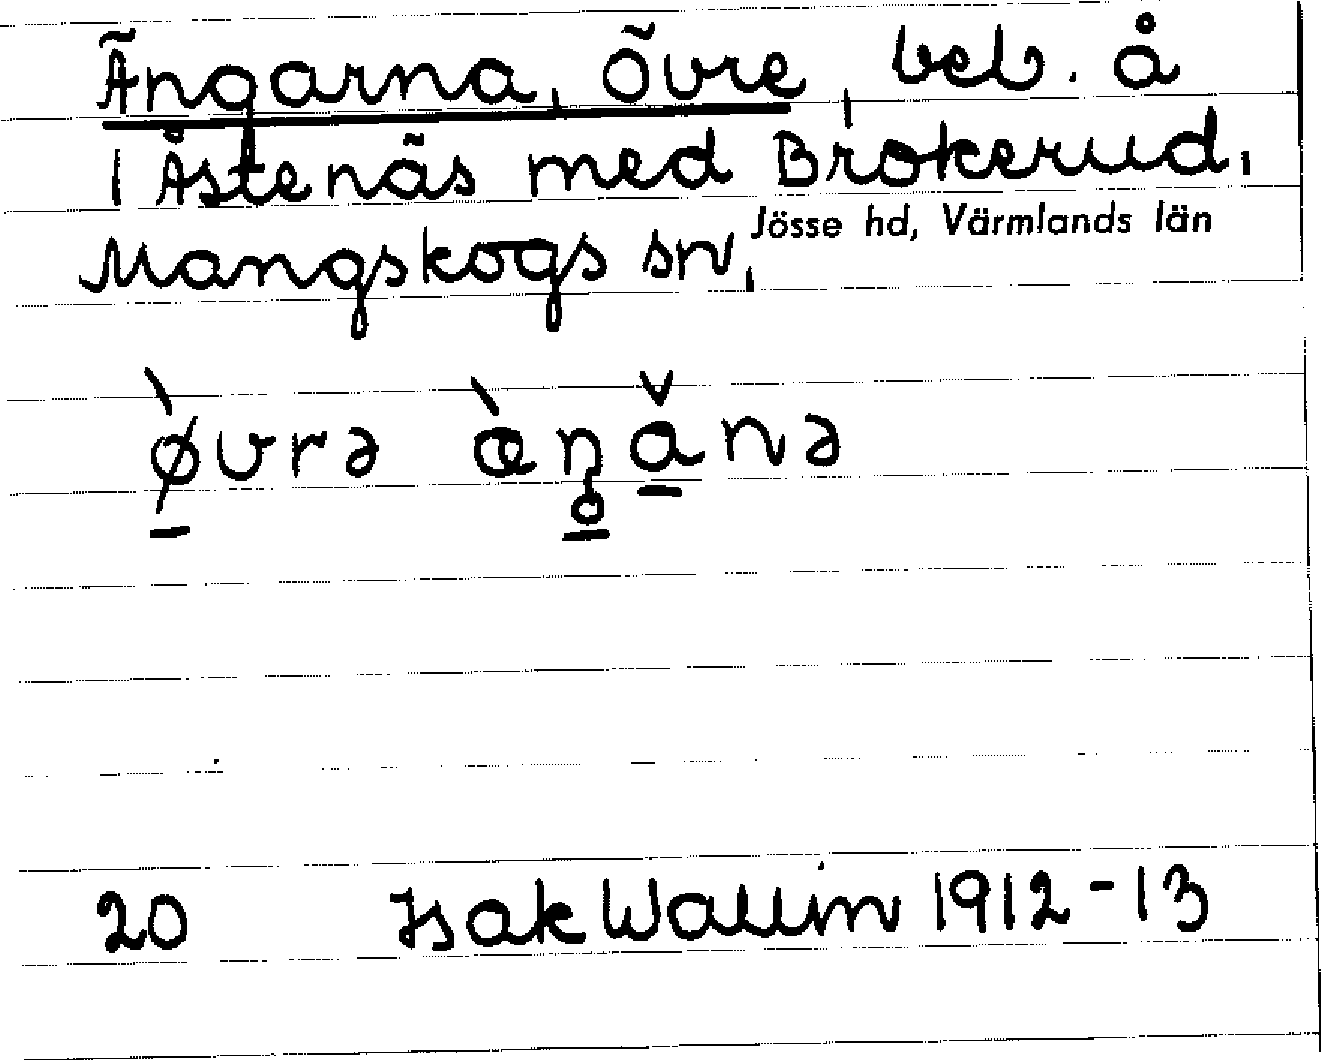 Ängarna, Övre, beb. å
1 Åstenäs med Brokerud,
Mangskogs sn, Jösse hd, Värmlands län
ø̱̀vrə æ̀ŋǎ̱nə
20 Isak Wallin 1912-13